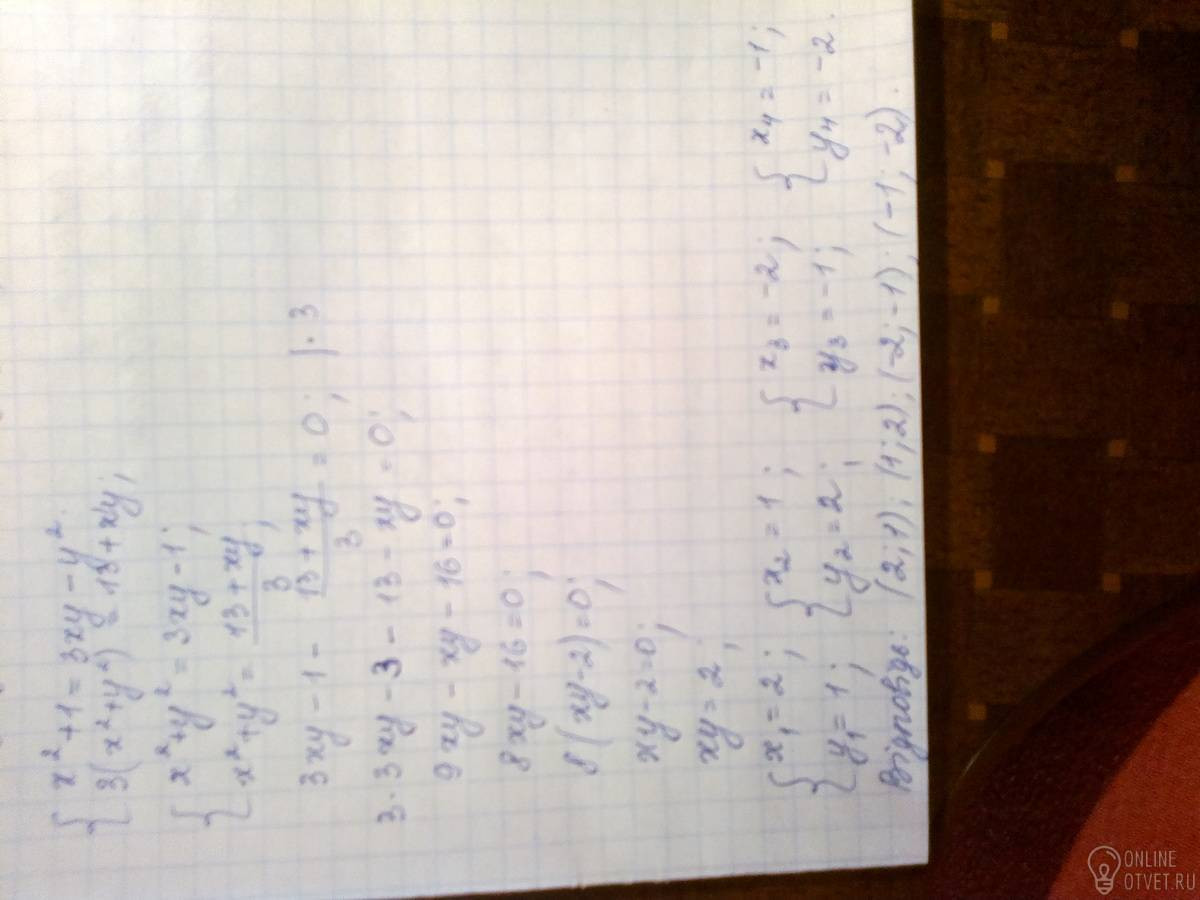 { x² + 1 = 3xy - y².
{ 3(x² + y²) = 13 + xy;
{ x² + y² = 3xy - 1;
{ x² + y² = (13 + xy)/3;
3xy - 1 - (13 + xy)/3 = 0; | · 3
3 · 3xy - 3 - 13 - xy = 0;
9xy - xy - 16 = 0;
8xy - 16 = 0;
8(xy - 2) = 0;
xy - 2 = 0;
xy = 2;
{ x₁ = 2; { x₂ = 1; { x₃ = -2; { x₄ = -1;
{ y₁ = 1; { y₂ = 2; { y₃ = -1; { y₄ = -2.
Відповідь: (2; 1); (1; 2); (-2; -1); (-1; -2).
ONLINE
OTVET.RU